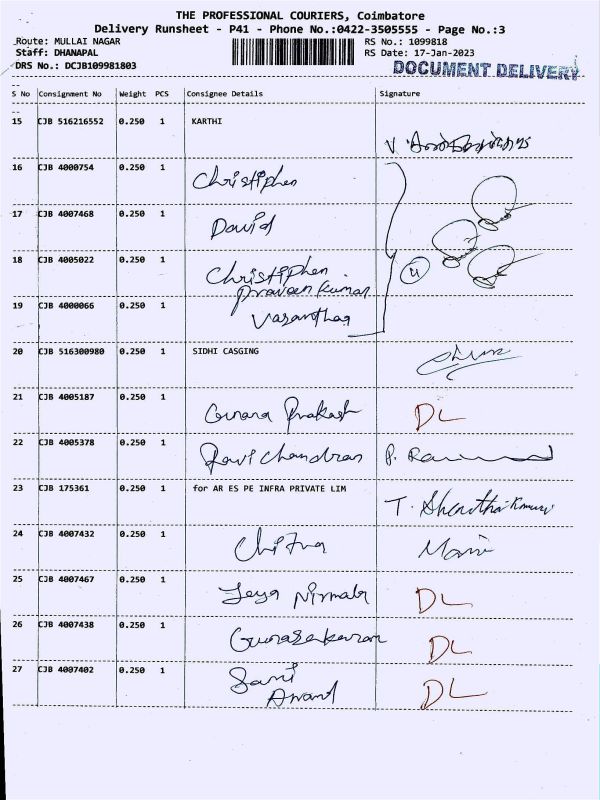 THE PROFESSIONAL COURIERS, Coimbatore
Delivery Runsheet - P41 - Phone No.:0422-3505555 - Page No.:3
Route: MULLAI NAGAR RS No.: 1099818
Staff: DHANAPAL RS Date: 17-Jan-2023
DRS No.: DCJB109981803 DOCUMENT DELIVERY
S No Consignment No Weight PCS Consignee Details Signature
15 CJB 516216552 0.250 1 KARTHI
16 CJB 4000754 0.250 1 Christiphen
17 CJB 4007468 0.250 1 David
18 CJB 4005022 0.250 1 Christiphen
Praveen Kumar
19 CJB 4000066 0.250 1 Vasanthag
20 CJB 516300980 0.250 1 SIDHI CASGING
21 CJB 4005187 0.250 1 Gnana Prakash DL
22 CJB 4005378 0.250 1 Ravi Chandran
23 CJB 175361 0.250 1 for AR ES PE INFRA PRIVATE LIM
24 CJB 4007432 0.250 1
25 CJB 4007467 0.250 1 Jeya Nirmala DL
26 CJB 4007438 0.250 1 Gunasekaran DL
27 CJB 4007402 0.250 1 Sani
Anand DL